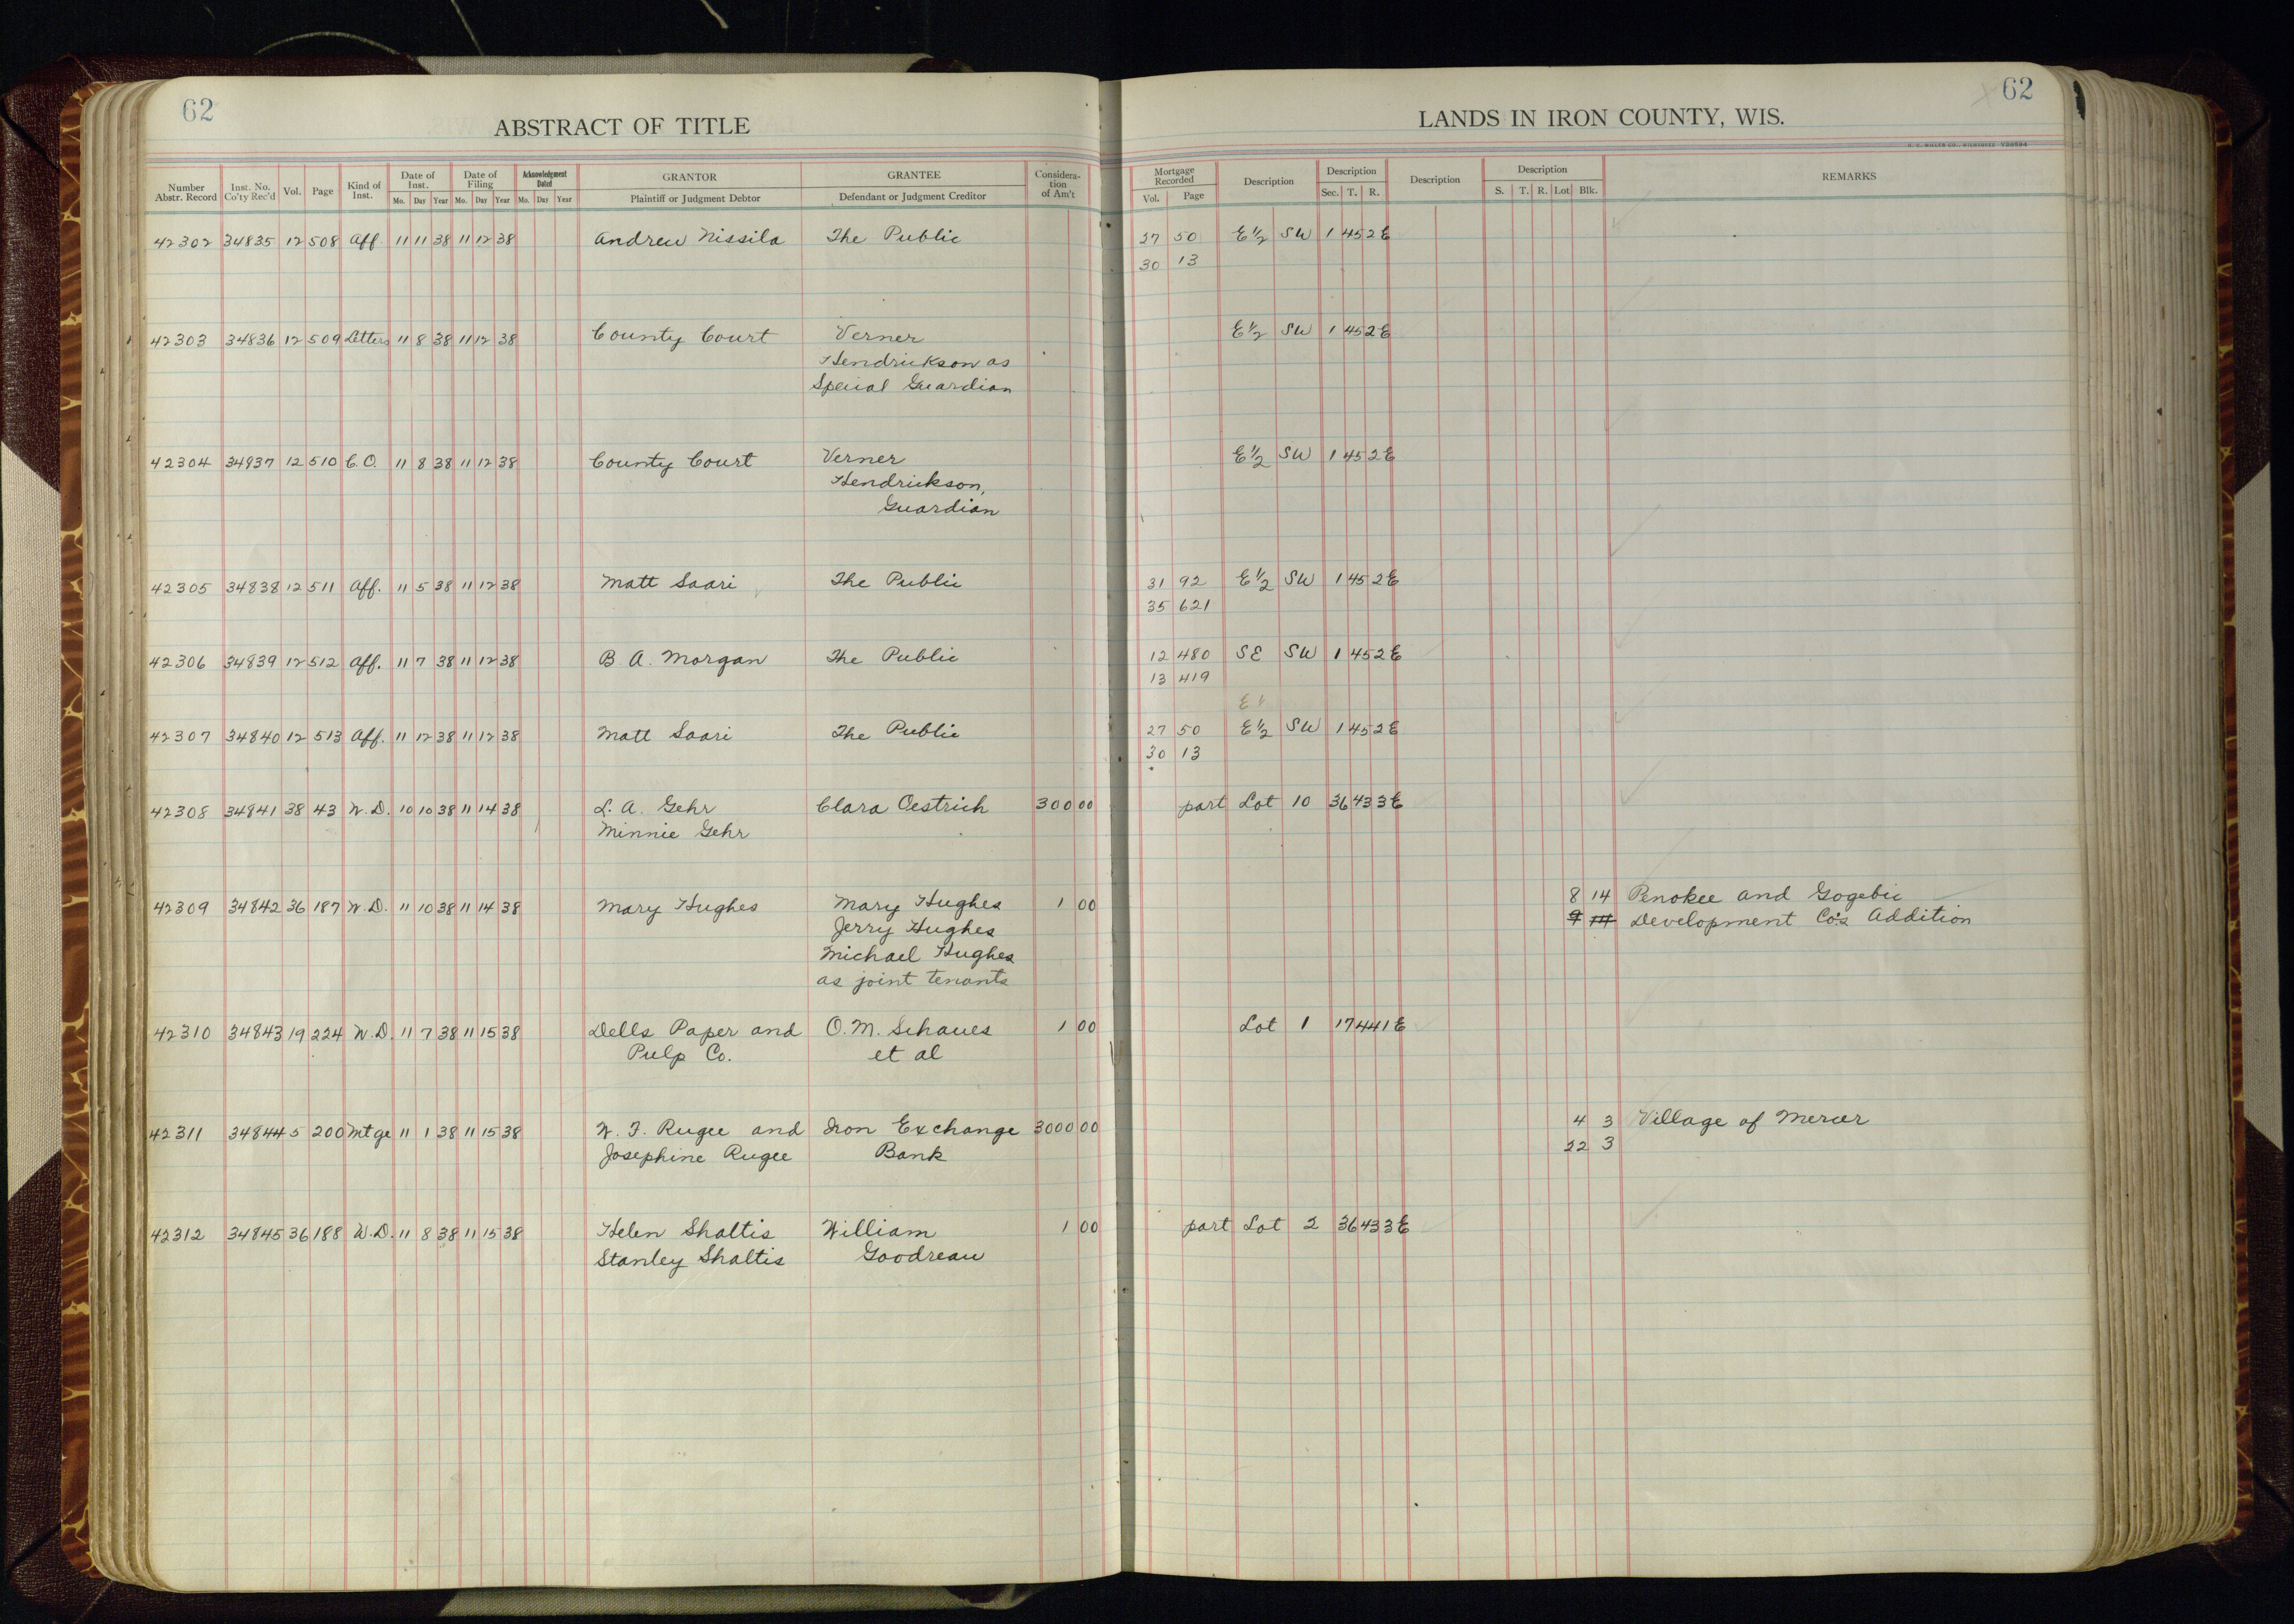 62
ABSTRACT OF TITLE
Number Abstr. Record Inst. No. Co'ty Rec'd Vol. Page Kind of Inst. Date of Inst. Mo. Day Year Date of Filing Mo. Day Year Acknowledgment Dated Mo. Day Year GRANTOR Plaintiff or Judgment Debtor GRANTEE Defendant or Judgment Creditor Considera-tion of Am't
42302 34835 12 508 Aff. 11 11 38 11 12 38 Andrew Nissila The Public
42303 34836 12 509 Letters 11 8 38 11 12 38 County Court Verner
Hendrickson as
Special Guardian
42304 34937 12 510 C.O. 11 8 38 11 12 38 County Court Verner
Hendrickson,
Guardian
42305 34838 12 511 Aff. 11 5 38 11 12 38 Matt Saari The Public
42306 34839 12 512 Aff. 11 7 38 11 12 38 B. A. Morgan The Public
42307 34840 12 513 Aff. 11 12 38 11 12 38 Matt Saari The Public
42308 34841 38 43 W.D. 10 10 38 11 14 38 L. A. Gehr Clara Oestrich 300 00
Minnie Gehr
42309 34842 36 187 W.D. 11 10 38 11 14 38 Mary Hughes Mary Hughes 1 00
Jerry Hughes
Michael Hughes
as joint tenants
42310 34843 19 224 W.D. 11 7 38 11 15 38 Dells Paper and O. M. Schaues 1 00
Pulp Co. et al
42311 34844 5 200 Mtge 11 1 38 11 15 38 W. F. Rugee and Iron Exchange 3000 00
Josephine Rugee Bank
42312 34845 36 188 W.D. 11 8 38 11 15 38 Helen Shaltis William 1 00
Stanley Shaltis Goodreau
62
LANDS IN IRON COUNTY, WIS.
Mortgage Recorded Vol. Page Description Description Sec. T. R. Description Description S. T. R. Lot Blk. REMARKS
27 50 E½ SW 1 45 2E
30 13
E½ SW 1 45 2E
E½ SW 1 45 2E
31 92 E½ SW 1 45 2E
35 621
12 480 SE SW 1 45 2E
13 419
27 50 E½ SW 1 45 2E
30 13
part Lot 10 36 43 3E
8 14 Penokee and Gogebic
9 14 Development Co's Addition
Lot 1 17 44 1E
4 3 Village of Mercer
22 3
part Lot 2 36 43 3E